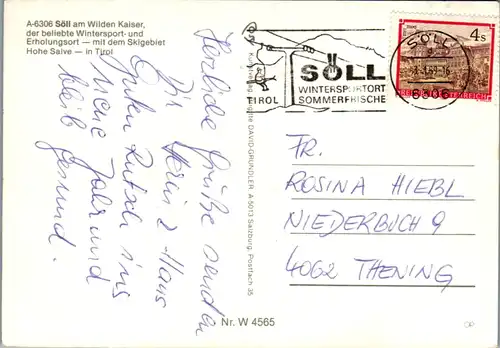 A-6306 Söll am Wilden Kaiser,
der beliebte Wintersport- und
Erholungsort — mit dem Skigebiet
Hohe Salve — in Tirol
Herzliche Grüße senden
Dir
Guten Rutsch ins
neue Jahr und
bleib gesund.
DAVID-GRÜNDLER A 5013 Salzburg, Postfach 35
TIROL
SÖLL
WINTERSPORTORT
SOMMERFRISCHE
SÖLL
6306
4 S
REPUBLIK ÖSTERREICH
FR.
ROSINA HIEBL
NIEDERBUCH 9
4062 THENING
Nr. W 4565